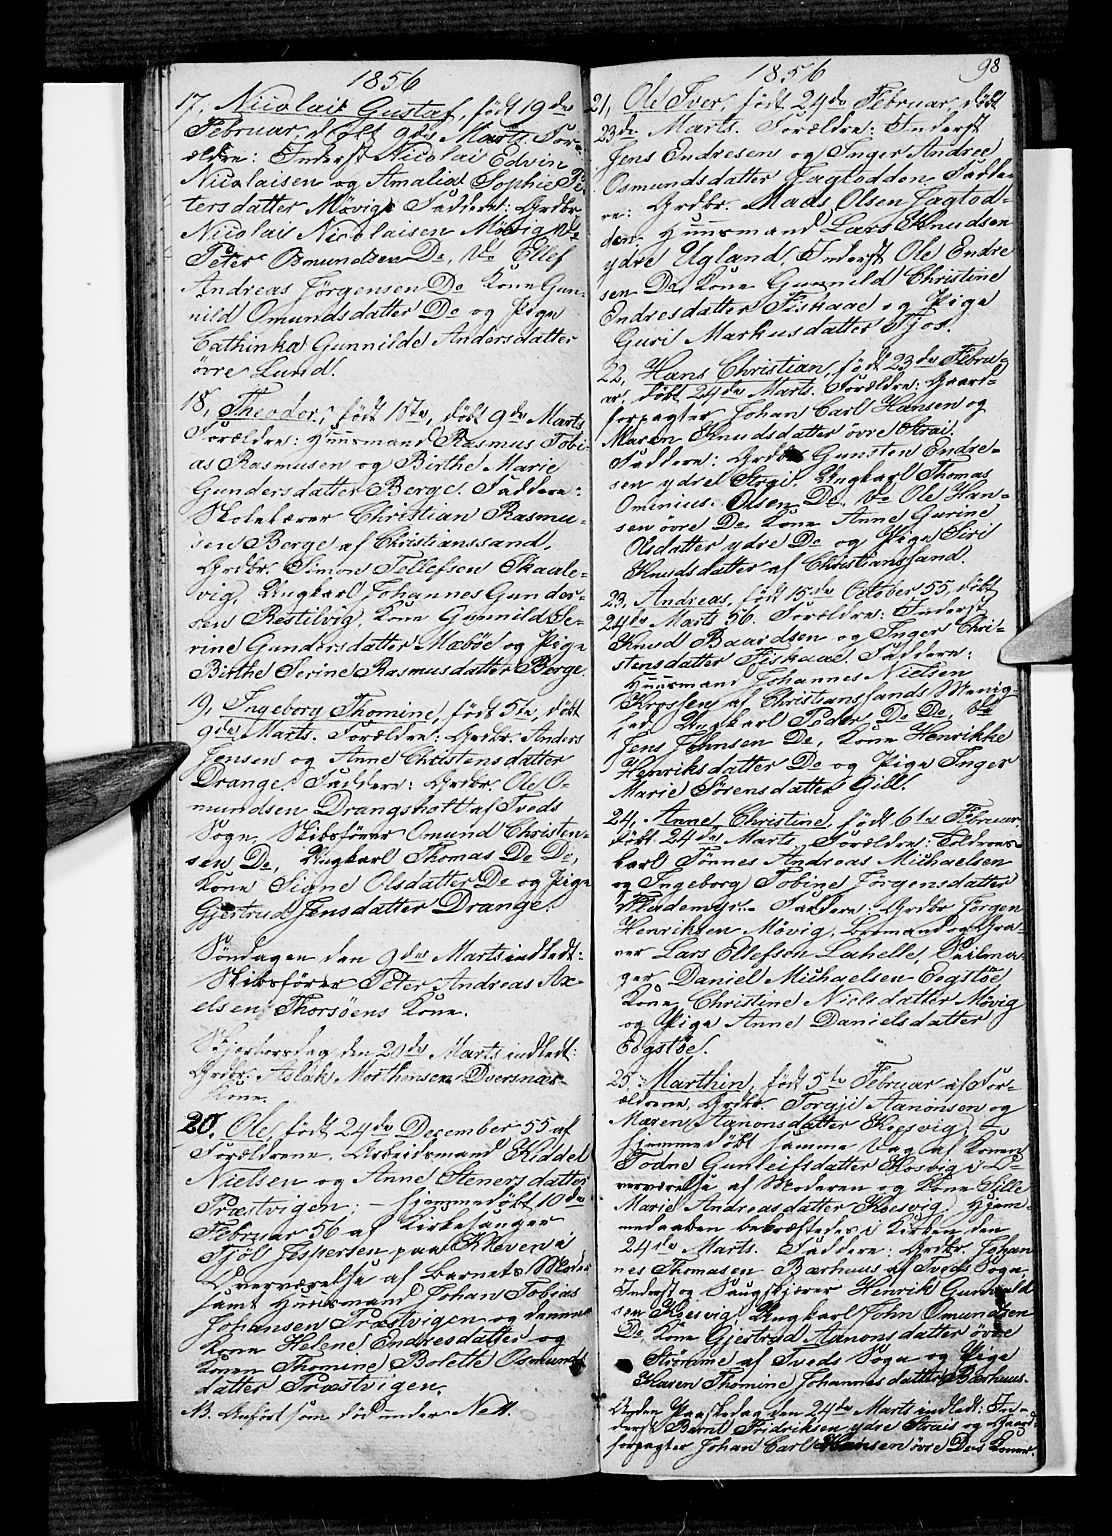 1856
17, Nicolai Gustaf, født 19de
Februar, døbt 9de Marts. For-
ældre: Inderst Nicolai Edvin
Nicolaisen og Amalia Sophie Pe-
tersdatter Møvig. Faddere: Grdbr.
Nicolai Nicolaisen Møvig,
Peter Osmundsen Do, Ellef
Andreas Jørgensen Do Kone Gun-
nild Omundsdatter Do og Pige
Cathinka Gunnilde Andersdatter
øvre Lund.
18, Theodor, født 1ste, døbt 9de Marts
Forældre: Huusmand Rasmus Tobi-
as Rasmusen og Birthe Marie
Gundersdatter Berge. Faddere:
Skolelærer Christian Rasmu-
sen Berge af Christianssand,
Grdbr. Simon Tellefsen Skaale-
vig, Ungkarl Johannes Gunder-
sen Restilvig, Kone Gunnild Se-
rine Gundersdatter Mæbøe og Pige
Birthe Serine Rasmusdatter Berge.
19, Ingeborg Thomine, født 5te, døbt
9de Marts. Forældre: Grdbr. Anders
Jensen og Anne Christensdatter
Drange. Faddere: Grdbr. Ole O-
mundsen Drangsholt af Tveds
Sogn, Skibsfører Omund Christen-
sen Do, Ungkarl Thomas Do Do,
Kone Signe Olsdatter Do og Pige
Gjertrud Jensdatter Drange.
Søndagen den 9de Marts indledt:
Skibsfører Peter Andreas Ax-
elsen Thorsøens Kone.
Skjertorsdag den 20de Marts indledt:
Grdbr. Aslak Morthensen Dversnæs
Kone.
20, Ole, født 24de December 55 af
Forældrene, Arbeidsmand Kiddel
Nielsen og Anne Stenersdatter
Præstvigen; – hjemmedøbt 10de
Februar 56 af Kirkesanger
Fjøl Jespersen paa Kleven i
Overværelse af Barnets Moder
samt Huusmand Johan Tobias
Johansen Præstvigen og dennes
Kone Helene Endresdatter og
Konen Thomine Bolette Osmunds
datter Præstvigen.
NB. Anført som død under No 11.
1856 98
21, Ole Iver, født 24de Februar, døbt
23de Marts. Forældre: Inderst
Jens Endresen og Inger Andree
Osmundsdatter Fagtodden. Fadde-
re: Grdbr. Mads Olsen Fagtod-
den, Huusmand Lars Knudsen
ydre Ugland, Inderst Ole Endre
sen Do, Kone Gunnild Christine
Endresdatter Fiskaae og Pige
Guri Markusdatter Fjos.
22, Hans Christian, født 23de Febru-
ar, døbt 24de Marts. Forældre: Gaard-
forpagter Johan Carl Hansen og
Maren Knudsdatter øvre Strai,
Faddere: Grdbr Gunsten Endre-
sen ydre Strai, Ungkarl Thomas
Omenius Olsen Do, Ole Han-
sen øvre Do, Kone Anne Gurine
Olsdatter ydre Do og Pige Siri
Knudsdatter af Christianssand.
23, Andreas, født 15de October 55, døbt
24de Marts 56. Forældre: Inderst
Knud Baardsen og Inger Chri-
stensdatter Fiskaae. Faddere:
Huusmand Johannes Nielsen
Krossen af Christianssands Menig-
hed, Ungkarl Peder Do Do,
Jens Johnsen Do, Kone Henrikke
Henriksdatter Do og Pige Inger
Marie Sørensdatter Gill.
24, Anne Christine, født 6te Februar
døbt 24de Marts. Forældre:
karl Tønnes Andreas Michaelsen
og Ingeborg Tobine Jørgensdatter
Flademyr. Faddere: Grdbr Jørgen
Henriksen Møvig, og Gra-
ver Lars Ellefsen Lahelle, Seilma-
ger Daniel Michaelsen Eegstøe,
Kone Christine Nielsdatter Møvig
og Pige Anne Danielsdatter
Eegstøe.
25, Marthin, født 5te Februar af For-
ældrene, Grdbr. Torgji Aanonsen og
Maren Aanonsdatter Kosvig;
hjemmedøbt samme Dag af Konen
Todne Gunleifsdatter Kosvig i O-
verværelse af Moderen og Kone Sille
Marie Andreasdatter Kosvig. Hjem-
medaaben bekræftedes i Kirken den
24de Marts. Faddere: Grdbr. Johan
nes Thomasen Bærhuus af Tveds Sogn,
Inderst og Saugskjærer Henrik Gunvald
sen Kosvig, Ungkarl John Omundsen
Do, Kone Gjertrud Aanonsdatter øvre
Strømme af Tveds Sogn og Pige
Karen Thomine Johannesdatter Bærhuus.
Anden Paaskedag den 24de Marts indledt: In-
derst Bernt Fredriksen ydre Strais og Gaard
forpagter Johan Carl Hansen øvre Do's Koner.